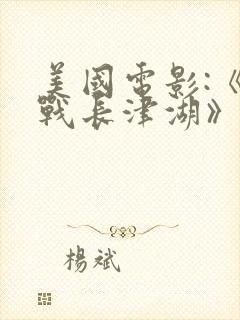 美國電影:《
戰長津湖》
楊斌